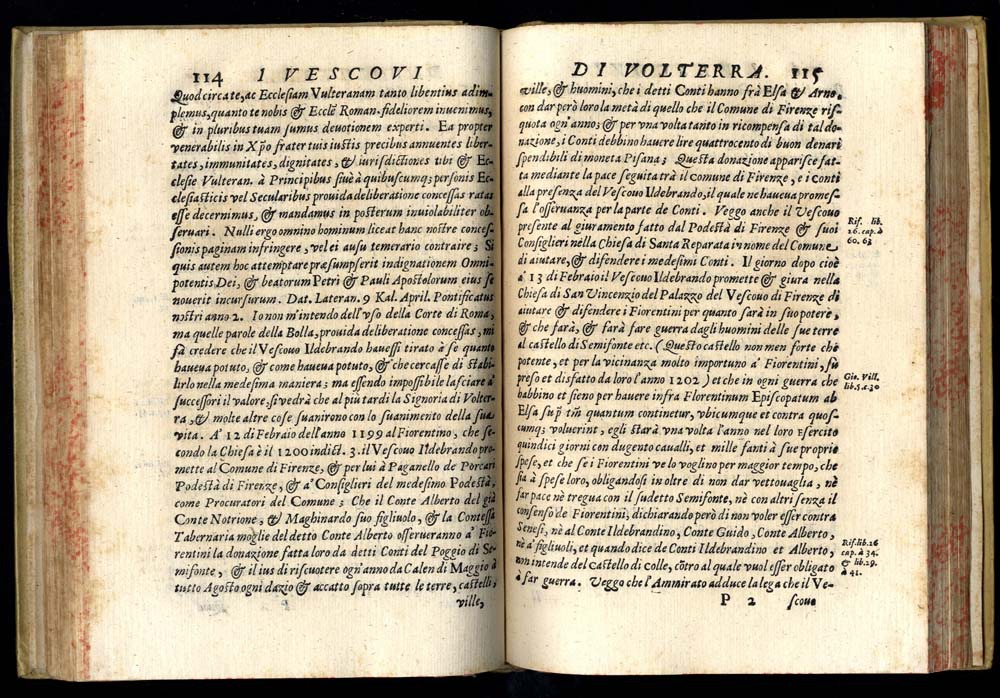 114 I VESCOVI
Quod circa te, ac Ecclesiam Vulteranam tanto libentius adim-
plemus, quanto te nobis & Eccle Roman. fideliorem invenimus,
& in pluribus tuam sumus devotionem experti. Ea propter
venerabilis in Xpo frater tuis iustis precibus annuentes liber-
tates, immunitates, dignitates, & iurisdictiones tibi & Ec-
clesie Vulteran. à Principibus sivè à quibuscumq; personis Ec-
clesiasticis vel Secularibus provida deliberatione concessas ratas
esse decernimus, & mandamus in posterum inviolabiliter ob-
servari. Nulli ergo omnino hominum liceat hanc nostre conces-
sionis paginam infringere, vel ei ausu temerario contraire; Si
quis autem hoc attemptare præsumpserit indignationem Omni-
potentis Dei, & beatorum Petri & Pauli Apostolorum eius se
noverit incursurum. Dat. Lateran. 9 Kal. April. Pontificatus
nostri anno 2. Io non m'intendo dell'vso della Corte di Roma,
ma quelle parole della Bolla, provida deliberatione concessas, mi
fà credere che il Vescovo Ildebrando havessi tirato à se quanto
haveva potuto, & come haveva potuto, & che cercasse di stabi-
lirlo nella medesima maniera; ma essendo impossibile lasciare a'
successori il valore, si vedrà che al più tardi la Signoria di Volter-
ra, & molte altre cose suanirono con lo suanimento della sua
vita. A' 12 di Febraio dell'anno 1199 al Fiorentino, che se-
condo la Chiesa è il 1200 indict. 3. il Vescovo Ildebrando pro-
mette al Comune di Firenze, & per lui à Paganello de Porcari
Podestà di Firenze, & a' Consiglieri del medesimo Podestà,
come Procuratori del Comune; Che il Conte Alberto del già
Conte Notrione, & Maghinardo suo figliuolo, & la Contessa
Tabernaria moglie del detto Conte Alberto osserveranno a' Fio-
rentini la donazione fatta loro da detti Conti del Poggio di Se-
mifonte, & il ius di riscuotere ogn'anno da Calen di Maggio à
tutto Agosto ogni dazio & accatto sopra tutte le terre, castelli,
ville,
DI VOLTERRA. 115
ville, & huomini, che i detti Conti hanno frà Elsa & Arno,
con dar però loro la metà di quello che il Comune di Firenze ris-
quota ogn'anno; & per vna volta tanto in ricompensa di tal do-
nazione, i Conti debbino havere lire quattrocento di buon denari
spendibili di moneta Pisana; Questa donazione apparisce fat-
ta mediante la pace seguita trà il comune di Firenze, e i conti
alla presenza del Vescovo Ildebrando, il quale ne haveva promes-
sa l'osservanza per la parte de Conti. Veggo anche il Vescovo
presente al giuramento fatto dal Podestà di Firenze & suoi
Consiglieri nella Chiesa di Santa Reparata in nome del Comune
di aiutare, & difendere i medesimi Conti. Il giorno dopo cioè
a' 13 di Febraio il Vescovo Ildebrando promette & giura nella
Chiesa di San Vincenzio del Palazzo del Vescovo di Firenze di
aiutare & difendere i Fiorentini per quanto sarà in suo potere,
& che farà, & farà fare guerra dagli huomini delle sue terre
al castello di Semifonte etc. (Questo castello non men forte che
potente, et per la vicinanza molto importuno a' Fiorentini, fù
preso et disfatto da loro l'anno 1202) et che in ogni guerra che
habbino et sieno per havere infra Florentinum Episcopatum ab
Elsa sup̃ tm̃ quantum continetur, vbicumque et contra quos-
cumq; voluerint, egli starà vna volta l'anno nel loro esercito
quindici giorni con dugento cavalli, et mille fanti à sue proprie
spese, et che se i Fiorentini ve lo voglino per maggior tempo, che
sia à spese loro, obligandosi in oltre di non dar vettovaglia, nè
far pace nè tregua con il sudetto Semifonte, nè con altri senza il
consenso de Fiorentini, dichiarando però di non voler esser contra
Senesi, nè al Conte Ildebrandino, Conte Guido, Conte Alberto,
nè a' figliuoli, et quando dice de Conti Ildebrandino et Alberto,
non intende del Castello di Colle, cōtro al quale vuol esser obligato
à far guerra. Veggo che l'Ammirato adduce la lega che il Ve-
P 2 scouo
Rif. lib.
26. cap. à
60. 63
Gio. Vill.
lib. 5. c. 30
Rif. lib. 26
cap. à 34.
& lib. 29.
à 41.